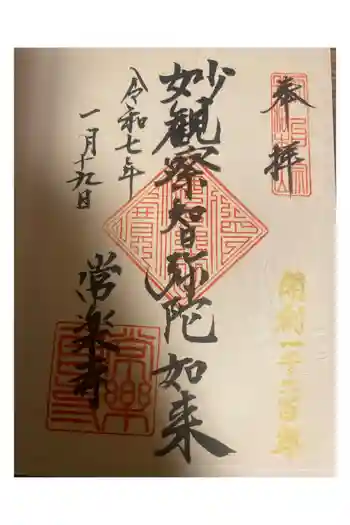 奉拝
開創一千二百年
妙観察智弥陀如来
令和七年
一月十九日
常楽寺